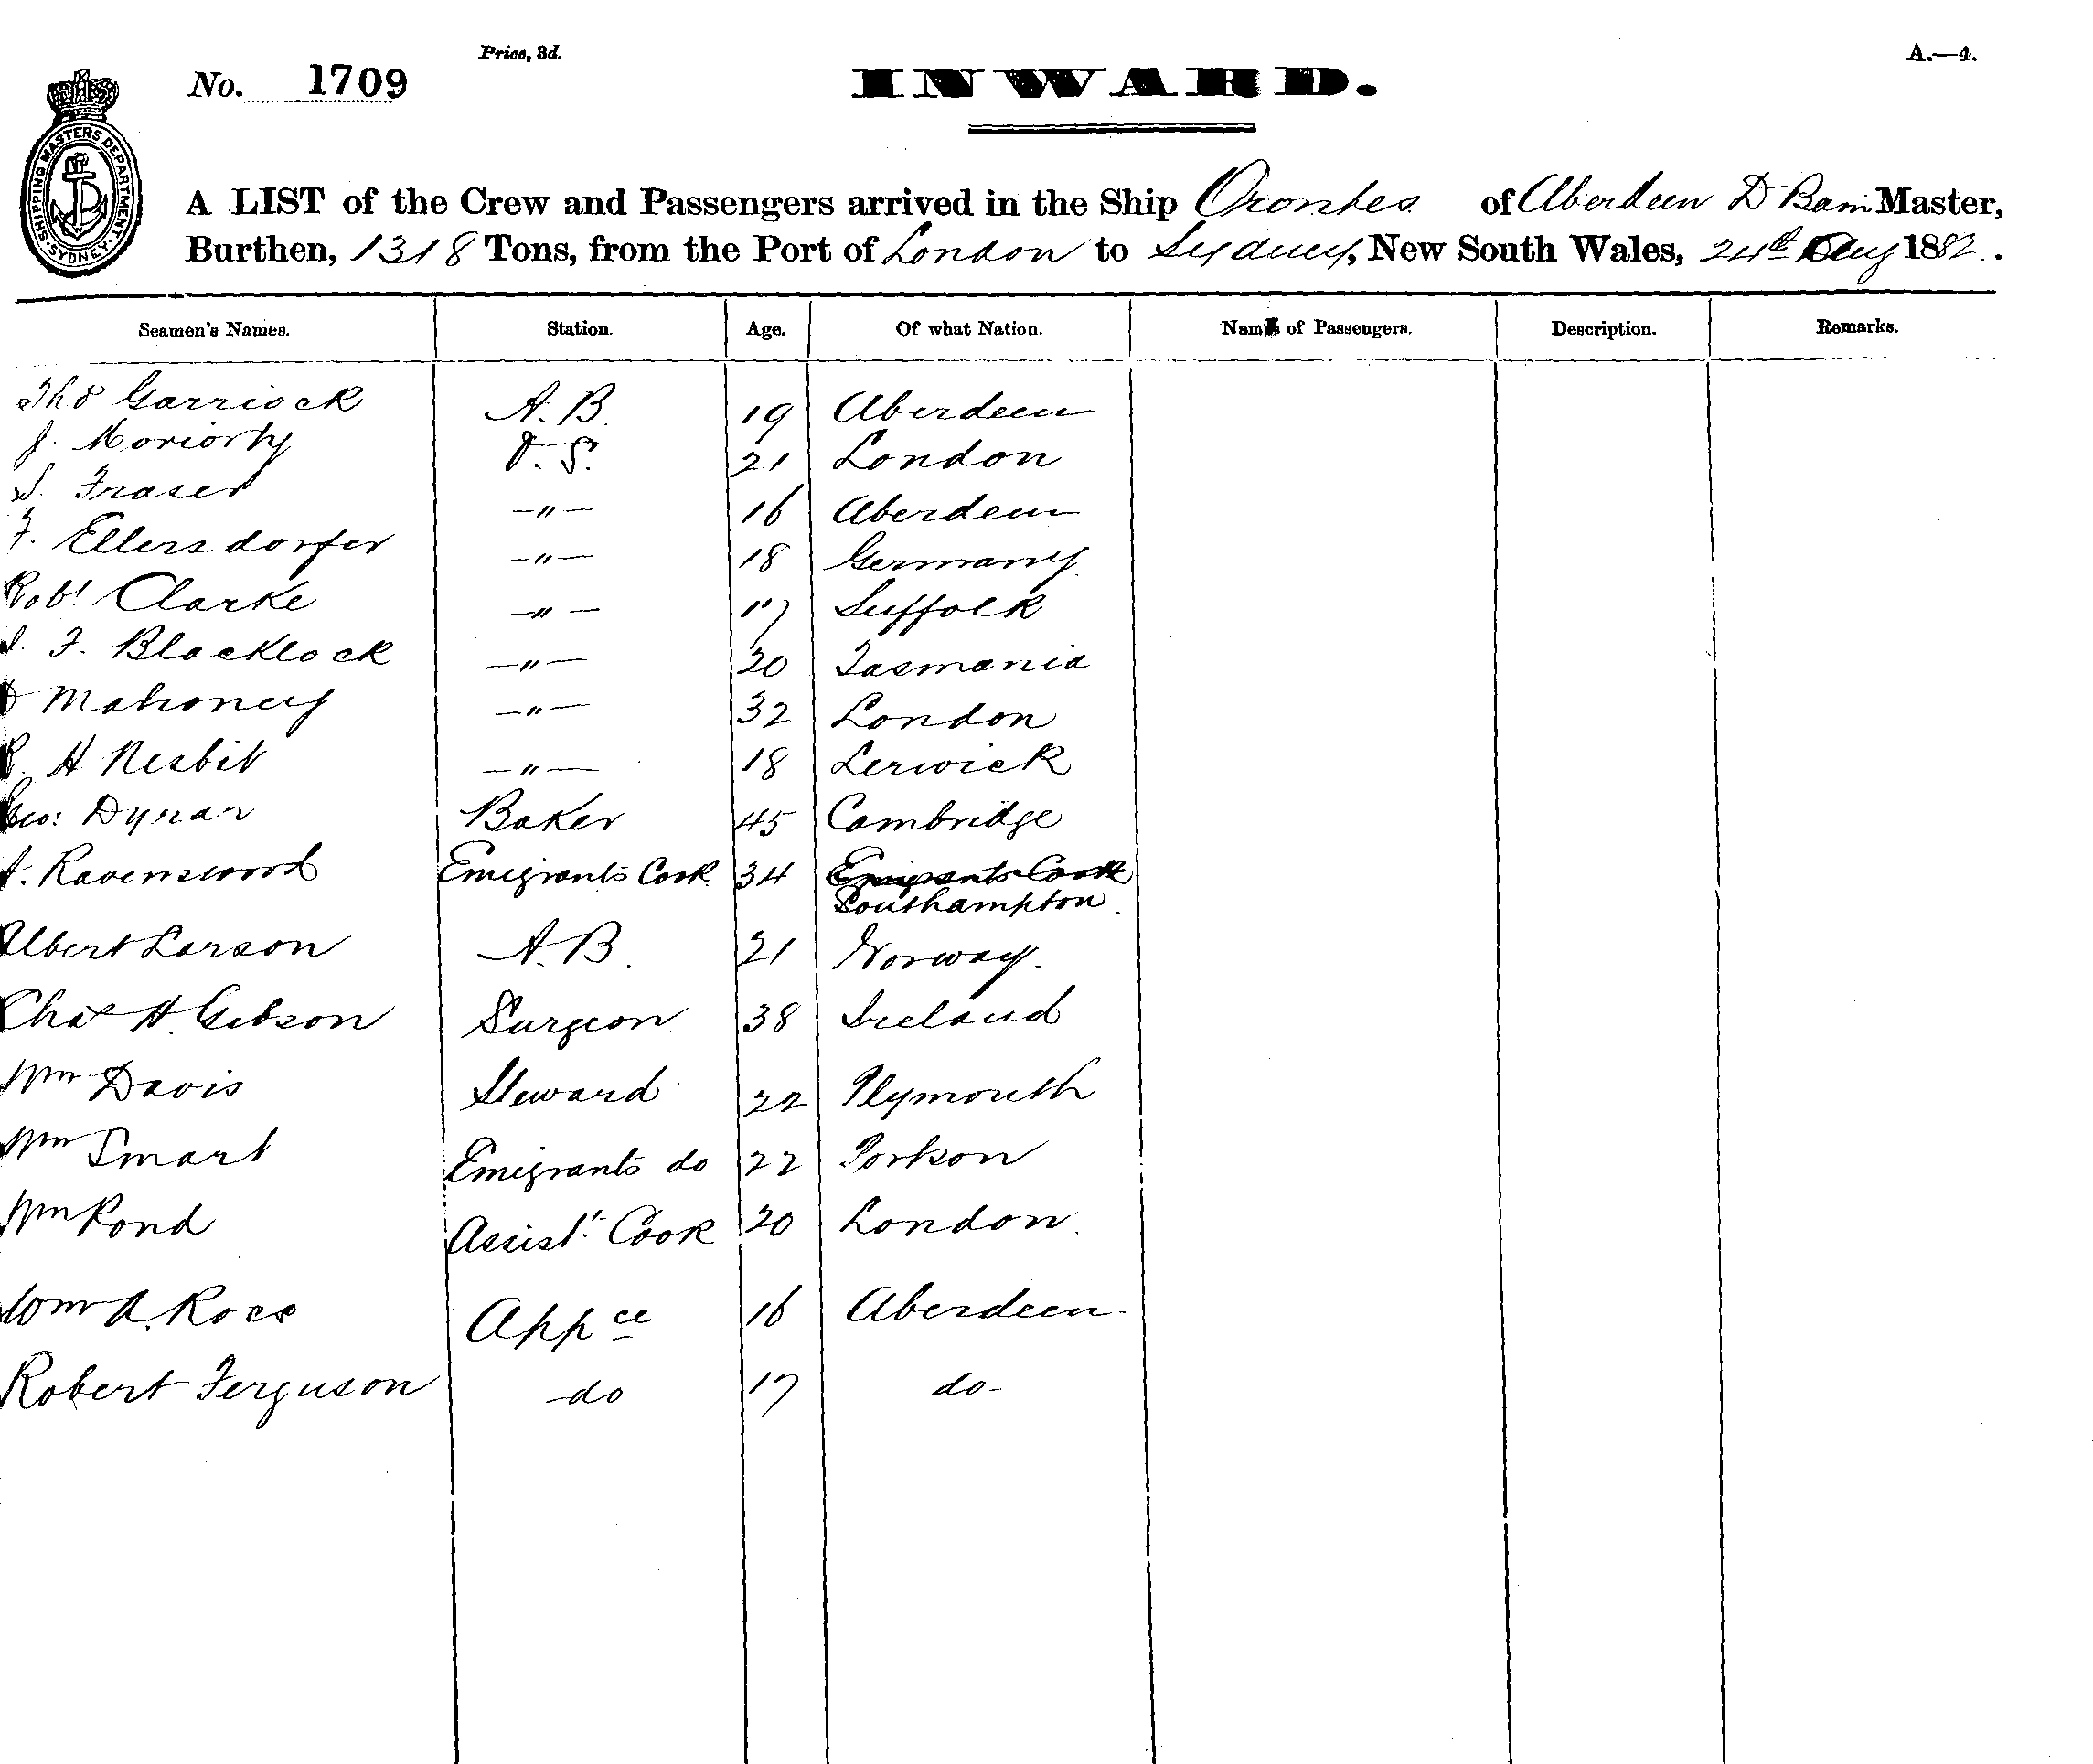 Price, 3d.
A.—4.
No. 1709
INWARD.
SHIPPING MASTERS DEPARTMENT
SYDNEY
A LIST of the Crew and Passengers arrived in the Ship Orontes of Aberdeen D Bain Master,
Burthen, 1318 Tons, from the Port of London to Sydney, New South Wales, 24th Aug 1882.
Seamen's Names. Station. Age. Of what Nation. Names of Passengers. Description. Remarks.
Thos Garriock A.B. 19 Aberdeen
J. Moriorty O.S. 21 London
Fraser —"— 16 Aberdeen
F. Ellersdorfer —"— 18 Germany
Robt Clarke —"— 17 Suffolk
F. Blacklock —"— 20 Tasmania
Mahoney —"— 32 London
R. H Nesbit —"— 18 Lerwick
Geo: Baker 45 Cambridge
Ravenswood Emigrants Cook 34 Emigrants Cook
Southampton.
Albert Larson A.B. 21 Norway.
Chas H. Gibson Surgeon 38 Ireland
Wm Davis Steward 22 Plymouth
Wm Smart Emigrants do 22
Wm Pond Assist. Cook 20 London.
Wm A. Ross Appce 16 Aberdeen
Robert Ferguson do 17 do